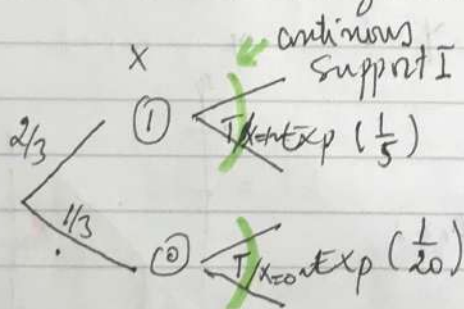 continuous
X support I
2/3 1 T/X=1~Exp (1/5)
1/3 0 T/X=0~Exp (1/20)